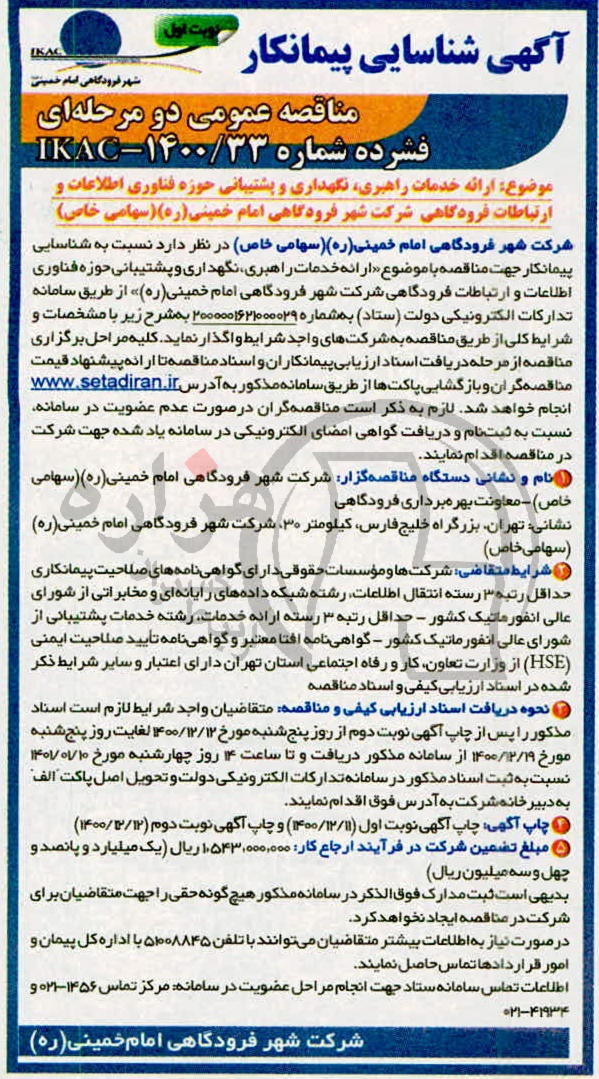 آگهی شناسایی پیمانکار
نوبت اول
IKAC
شهر فرودگاهی امام خمینی
مناقصه عمومی دو مرحله‌ای
فشرده شماره IKAC-۱۴۰۰/۳۳
موضوع: ارائه خدمات راهبری، نگهداری و پشتیبانی حوزه فناوری اطلاعات و
ارتباطات فرودگاهی شرکت شهر فرودگاهی امام خمینی(ره)(سهامی خاص)
شرکت شهر فرودگاهی امام خمینی(ره)(سهامی خاص) در نظر دارد نسبت به شناسایی
پیمانکار جهت مناقصه با موضوع «ارائه خدمات راهبری، نگهداری و پشتیبانی حوزه فناوری
اطلاعات و ارتباطات فرودگاهی شرکت شهر فرودگاهی امام خمینی(ره)» از طریق سامانه
تدارکات الکترونیکی دولت (ستاد) به‌شماره ۲۰۰۰۰۰۱۶۲۱۰۰۰۰۲۹ به‌شرح زیر با مشخصات و
شرایط کلی از طریق مناقصه به شرکت‌های واجد شرایط واگذار نماید. کلیه مراحل برگزاری
مناقصه از مرحله دریافت اسناد ارزیابی پیمانکاران و اسناد مناقصه تا ارائه پیشنهاد قیمت
مناقصه‌گران و بازگشایی پاکت‌ها از طریق سامانه مذکور به آدرس www.setadiran.ir
انجام خواهد شد. لازم به ذکر است مناقصه‌گران درصورت عدم عضویت در سامانه،
نسبت به ثبت‌نام و دریافت گواهی امضای الکترونیکی در سامانه یاد شده جهت شرکت
در مناقصه اقدام نمایند.
۱ نام و نشانی دستگاه مناقصه‌گزار: شرکت شهر فرودگاهی امام خمینی(ره)(سهامی
خاص)-معاونت بهره‌برداری فرودگاهی
نشانی: تهران، بزرگراه خلیج‌فارس، کیلومتر ۳۰، شرکت شهر فرودگاهی امام خمینی(ره)
(سهامی خاص)
۲ شرایط متقاضی: شرکت‌ها و مؤسسات حقوقی دارای گواهی‌نامه‌های صلاحیت پیمانکاری
حداقل رتبه ۳ رسته انتقال اطلاعات، رشته شبکه داده‌های رایانه‌ای و مخابراتی از شورای
عالی انفورماتیک کشور - حداقل رتبه ۳ رسته ارائه خدمات، رشته خدمات پشتیبانی از
شورای عالی انفورماتیک کشور - گواهی‌نامه افتا معتبر و گواهی‌نامه تأیید صلاحیت ایمنی
(HSE) از وزارت تعاون، کار و رفاه اجتماعی استان تهران دارای اعتبار و سایر شرایط ذکر
شده در اسناد ارزیابی کیفی و اسناد مناقصه
۳ نحوه دریافت اسناد ارزیابی کیفی و مناقصه: متقاضیان واجد شرایط لازم است اسناد
مذکور را پس از چاپ آگهی نوبت دوم از روز پنج‌شنبه مورخ ۱۴۰۰/۱۲/۱۲ لغایت روز پنج‌شنبه
مورخ ۱۴۰۰/۱۲/۱۹ از سامانه مذکور دریافت و تا ساعت ۱۴ روز چهارشنبه مورخ ۱۴۰۱/۰۱/۱۰
نسبت به ثبت اسناد مذکور در سامانه تدارکات الکترونیکی دولت و تحویل اصل پاکت "الف"
به دبیرخانه شرکت به آدرس فوق اقدام نمایند.
۴ چاپ آگهی: چاپ آگهی نوبت اول (۱۴۰۰/۱۲/۱۱) و چاپ آگهی نوبت دوم (۱۴۰۰/۱۲/۱۲)
۵ مبلغ تضمین شرکت در فرآیند ارجاع کار: ۱،۵۴۳،۰۰۰،۰۰۰ ریال (یک میلیارد و پانصد و
چهل و سه میلیون ریال)
بدیهی است ثبت مدارک فوق‌الذکر در سامانه مذکور هیچ گونه حقی را جهت متقاضیان برای
شرکت در مناقصه ایجاد نخواهد کرد.
در صورت نیاز به اطلاعات بیشتر متقاضیان می‌توانند با تلفن ۵۱۰۰۸۸۴۵ با اداره کل پیمان و
امور قراردادها تماس حاصل نمایند.
اطلاعات تماس سامانه ستاد جهت انجام مراحل عضویت در سامانه: مرکز تماس ۱۴۵۶-۰۲۱ و
۰۲۱-۴۱۹۳۴
شرکت شهر فرودگاهی امام خمینی(ره)
هزاره